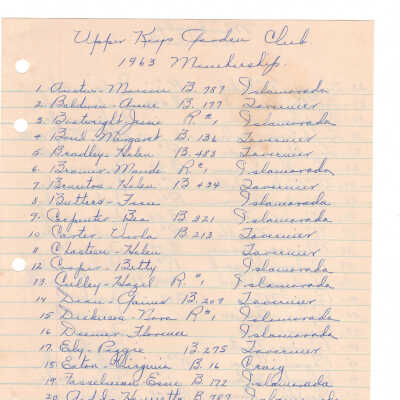 Upper Keys Garden Club
1963 Membership.
1. Austin - Marian B. 787 Islamorada
2. Baldwin - Anne B. 177 Tavernier
3. Boatwright Jessie R. #1 Islamorada
4. Bond Margaret B. 136 Tavernier
5. Bradley - Helen B. 483 Tavernier
6. Bramer - Maude R. #1 Islamorada
7. Braunton - Helen B 434 Tavernier
8. Butters - Islamorada
9. Carpenter - Bea B. 821 Islamorada
10. Carter - Viola B. 213 Tavernier
11 Chasteen - Helen Tavernier
12 Cooper - Betty Islamorada
13. Culley - Hazel R. #1 Islamorada
14 Dean - B. 209 Tavernier
15 Dickerson - Nora R #1 Islamorada
16 Deemer - Florence Islamorada
17. Ely - Peggie B. 275 Tavernier
18. Eaton - Virginia B. 16 Craig
19. Fasselman - B. 172 Islamorada
20. Henrietta B. 787 Islamorada